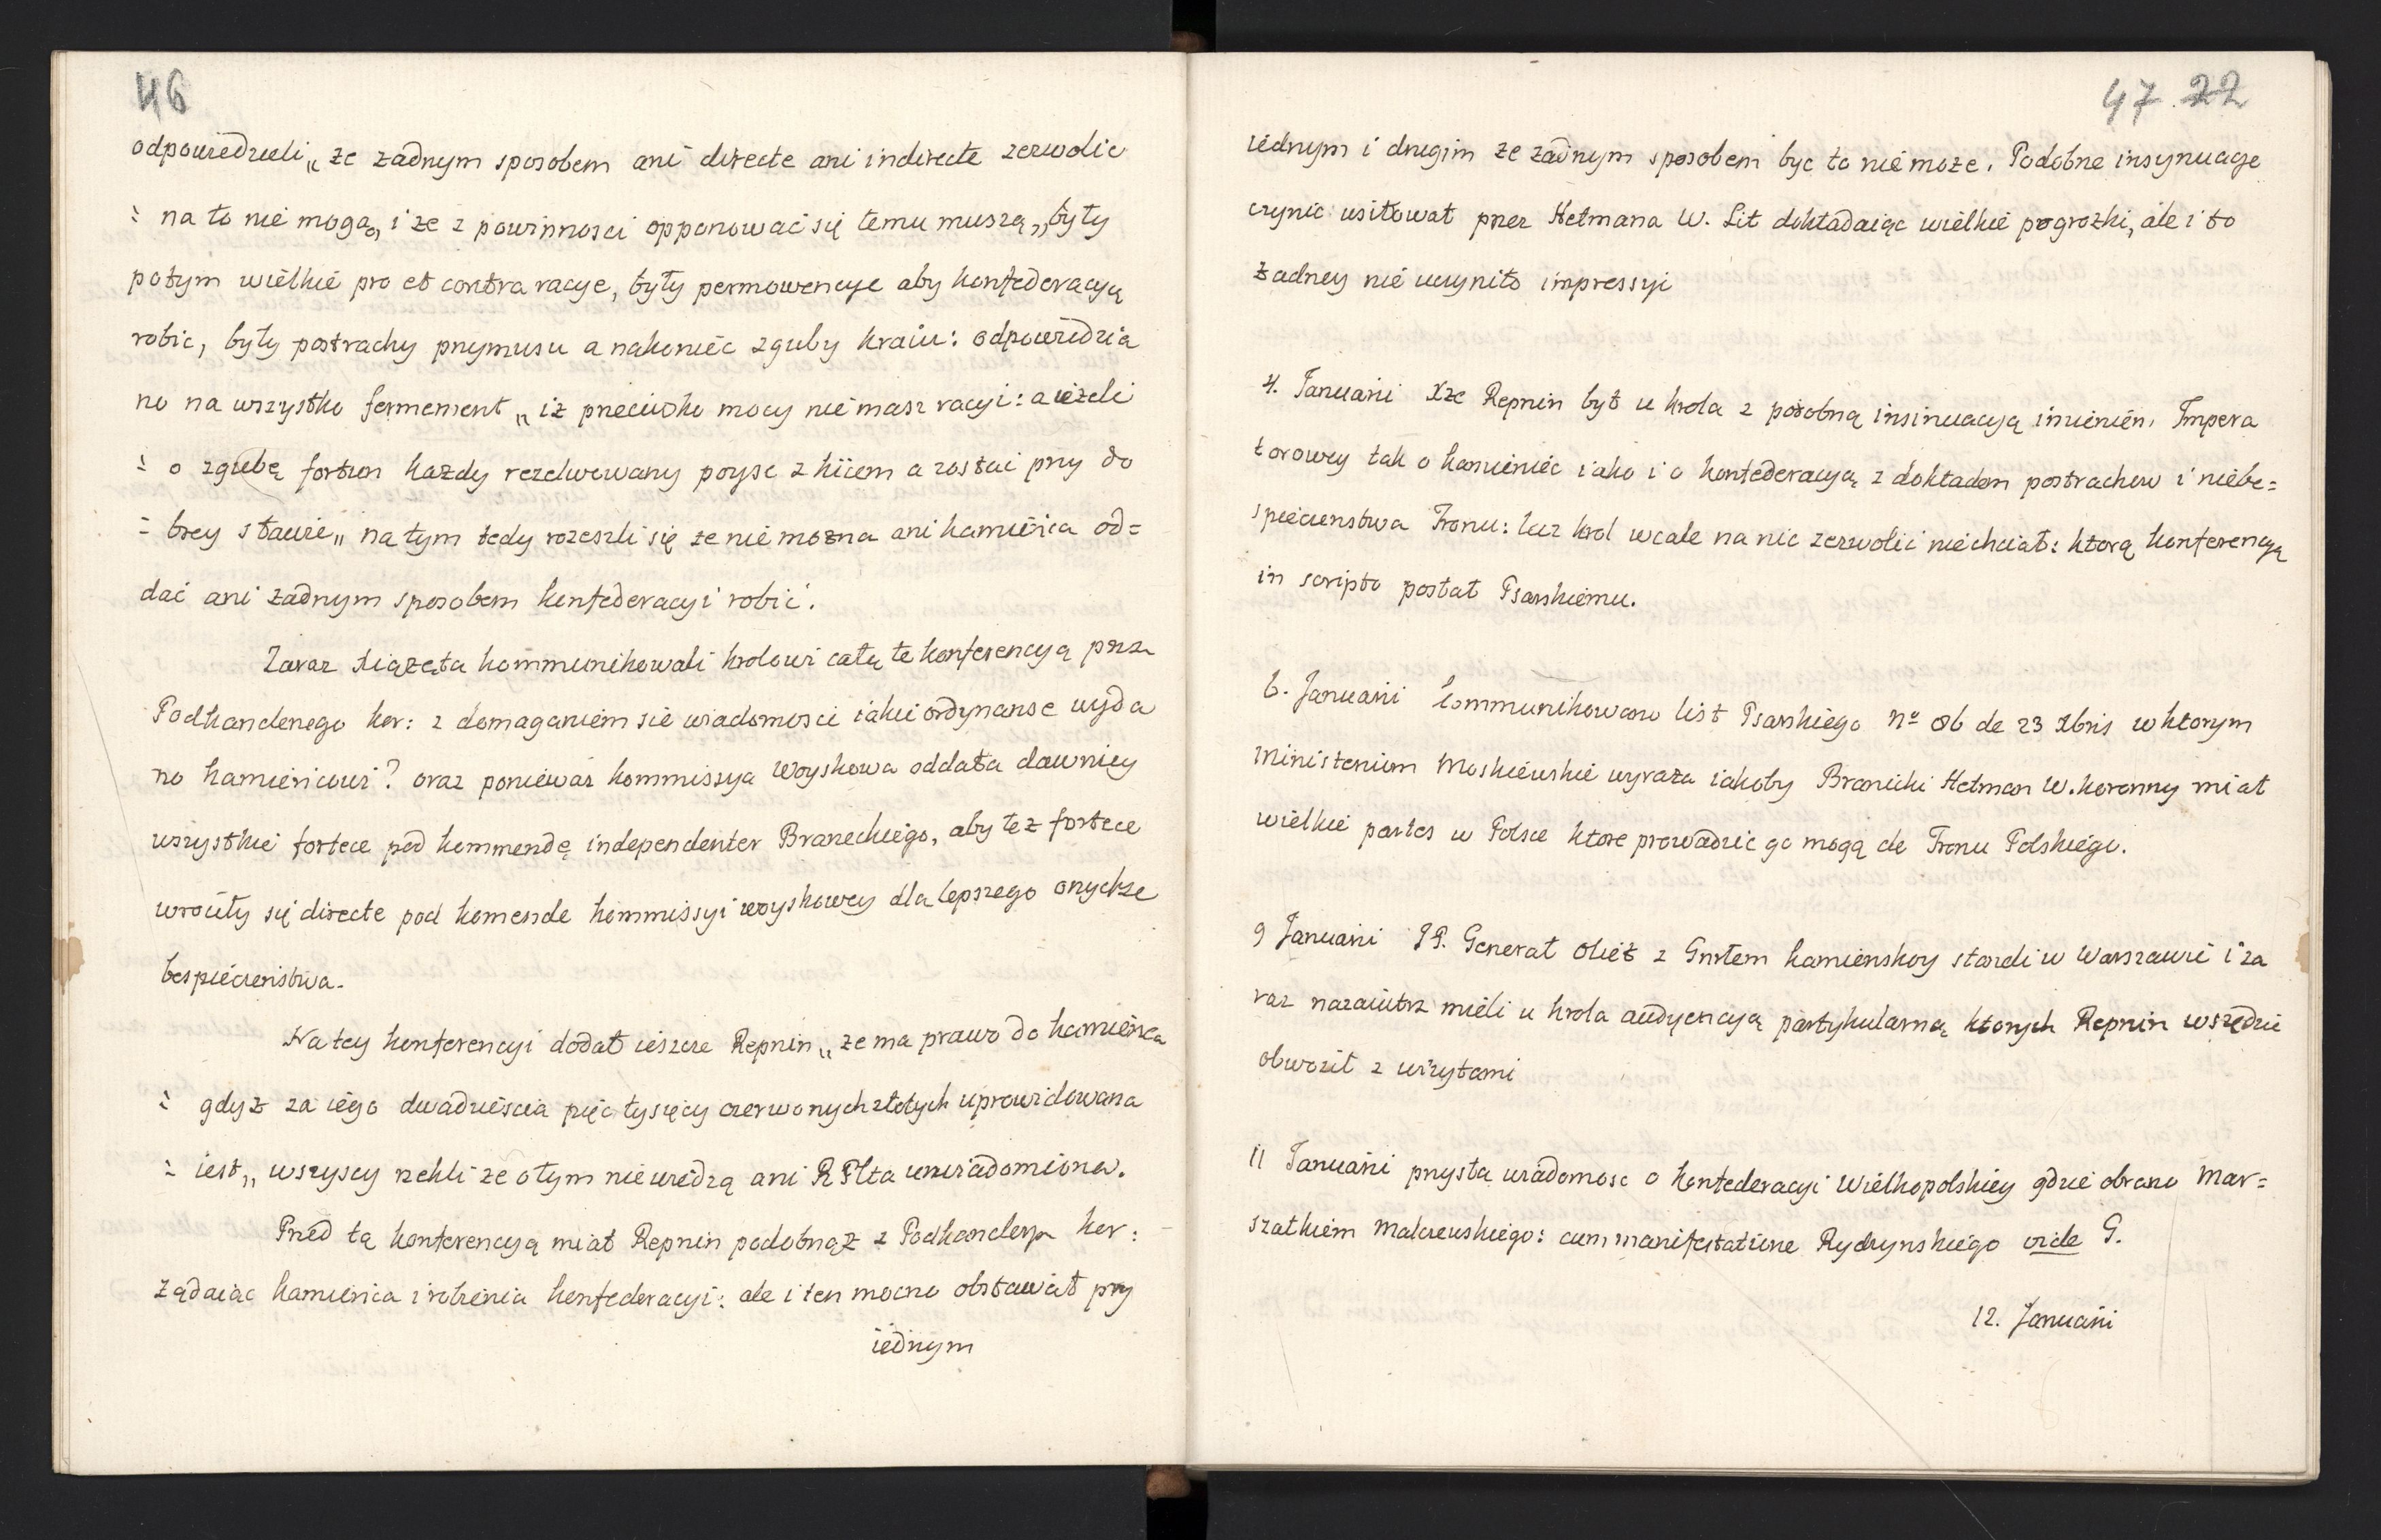 46
odpowiedzieli „ że żadnym sposobem ani directe ani indirecte zezwolic
: na to nie mogą, i że z powinnosci opponować się temu muszą „ były
potym wielkie pro et contra racye, były permowencye aby konfederacyą
robic, były postrachy przymusu a nakoniec zguby kraiu: odpowiedzia
no na wszystko fermement „ iż przeciwko mocy nie masz racyi: a ieżeli
: o zgubę fortun każdy rezolwowany poysc z kiiem a zostać przy do
: brey sławie „ na tym tedy rozeszli się że nie można ani kamieńca od=
dać ani żadnym sposobem konfederacyi robić.
Zaraz Xiążęta kommunikowali krolowi całą te konferencyą przez
Podkanclerzego kor: z domaganiem sie wiadomosci iakie ordynanse wyda
no kamieńcowi? oraz ponieważ kommissya Woyskowa oddała dawniey
wszystkie fortece pod kommendę independenter Braneckiego, aby też fortece
wrociły się directe pod komende kommissyi woyskowey dla lepszego onychże
bespieczeństwa.
Na tey konferencyi dodał ieszcze Repnin „ że ma prawo do kamieńca
: gdyż za iego dwadzieścia pięć tysięcy czerwonych złotych uprowidowana
: iest „ wszyscy rzekli że o tym nie wiedzą ani RPlta uwiadomiona.
Przed tą konferencyą miał Repnin podobnąż z Podkanclerzm kor:
żądaiąc kamieńca i robienia konfederacyi: ale i ten mocno obstawał przy
iednym
47 22
iednym i drugim że żadnym sposobem byc to nie moze. Podobne insynuacye
czynic usitował przez Hetmana W. Lit dokładaiąc wielkie pogrożki, ale i to
żadney nie uczyniło impressyi
4. Januarii Xże Repnin był u krola z posobną insinuacyą imieniem Impera
torowey tak o kamieniec iako i o konfederacyą z dokładem postrachow i niebe=
spieczenstwa Tronu: lecz krol wcale na nic zezwolić nie chciał: ktorą konferencyą
in scripto posłał Psarskiemu.
6. Januarii kommunikowano list Psarskiego No 86 de 23 Xbris w ktorym
Ministerium Moskiewskie wyraża iakoby Branicki Hetman W. koronny miał
wielkie partes w Polsce ktore prowadzic go mogą do Tronu Polskiego.
9 Januarii PP. Generał Olież z Gnrłem kamienskoy stanęli w Warszawie i za
raz nazaiutrz mieli u krola audyencyą partykularną ktorych Repnin wszędzie
obwoził z wizytami
11 Januarii przysła wiadomosc o konfederacyi Wielkopolskiey gdzie obrano Mar=
szałkiem Malczewskiego: cum manifestatione Rydzynskiego vide G.
12. Januarii